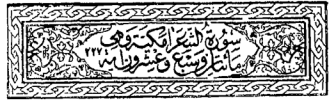 سورة الشعرا مكية وهى
مائتان وسبع وعشرون اية ٢٢٧